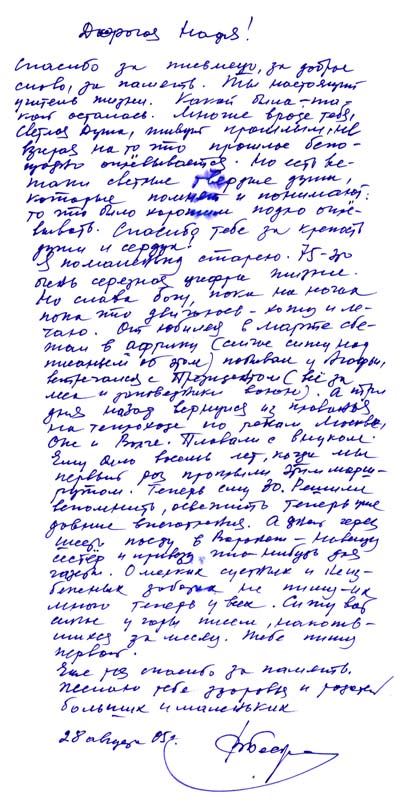 Дорогая Надя!
Спасибо за письмецо, за доброе
слово, за память. Ты настоящий
учитель жизни. Какой была – та-
кой осталась. Многие вроде тебя,
светлая душа, живут прошлым, не
взирая на то что прошлое беспо-
щадно оплёвывается. Но есть же-
таки светлые твердые души,
которые помнят и понимают:
то что было хорошим подло оплё-
вывать. Спасибо тебе за крепость
души и сердца!
Я помаленьку старею. 75 –
очень серьезная цифра жизни.
Но слава богу, пока на ногах
пока что двигаюсь – хожу и ле-
таю. От юбилея в марте сбе-
жал в Африку (сейчас сижу над
писаньем об этом) побывал у Агафьи,
встречался с Президентом (всё за
леса и заповедники воюю). А три
дня назад вернулся из
на теплоходе по рекам Москве,
Оке и Волге. Плавали с внуком.
Ему было восемь лет, когда мы
первый раз проплыли этим марш-
рутом. Теперь ему 20. Решили
вспомнить, освежить теперь уже
давние впечатления. А дней через
шесть поеду в Воронеж – навещу
сестёр и привезу что-нибудь для
газеты. О мелких суетных и неиз-
бежных заботах не пишу – их
много теперь у всех. Сижу вот
сейчас у горы писем, накопив-
шихся за месяц. Тебе пишу
первой.
Еще раз спасибо за память.
Желаю тебе здоровья и радостей
больших и маленьких
28 августа 05 г.